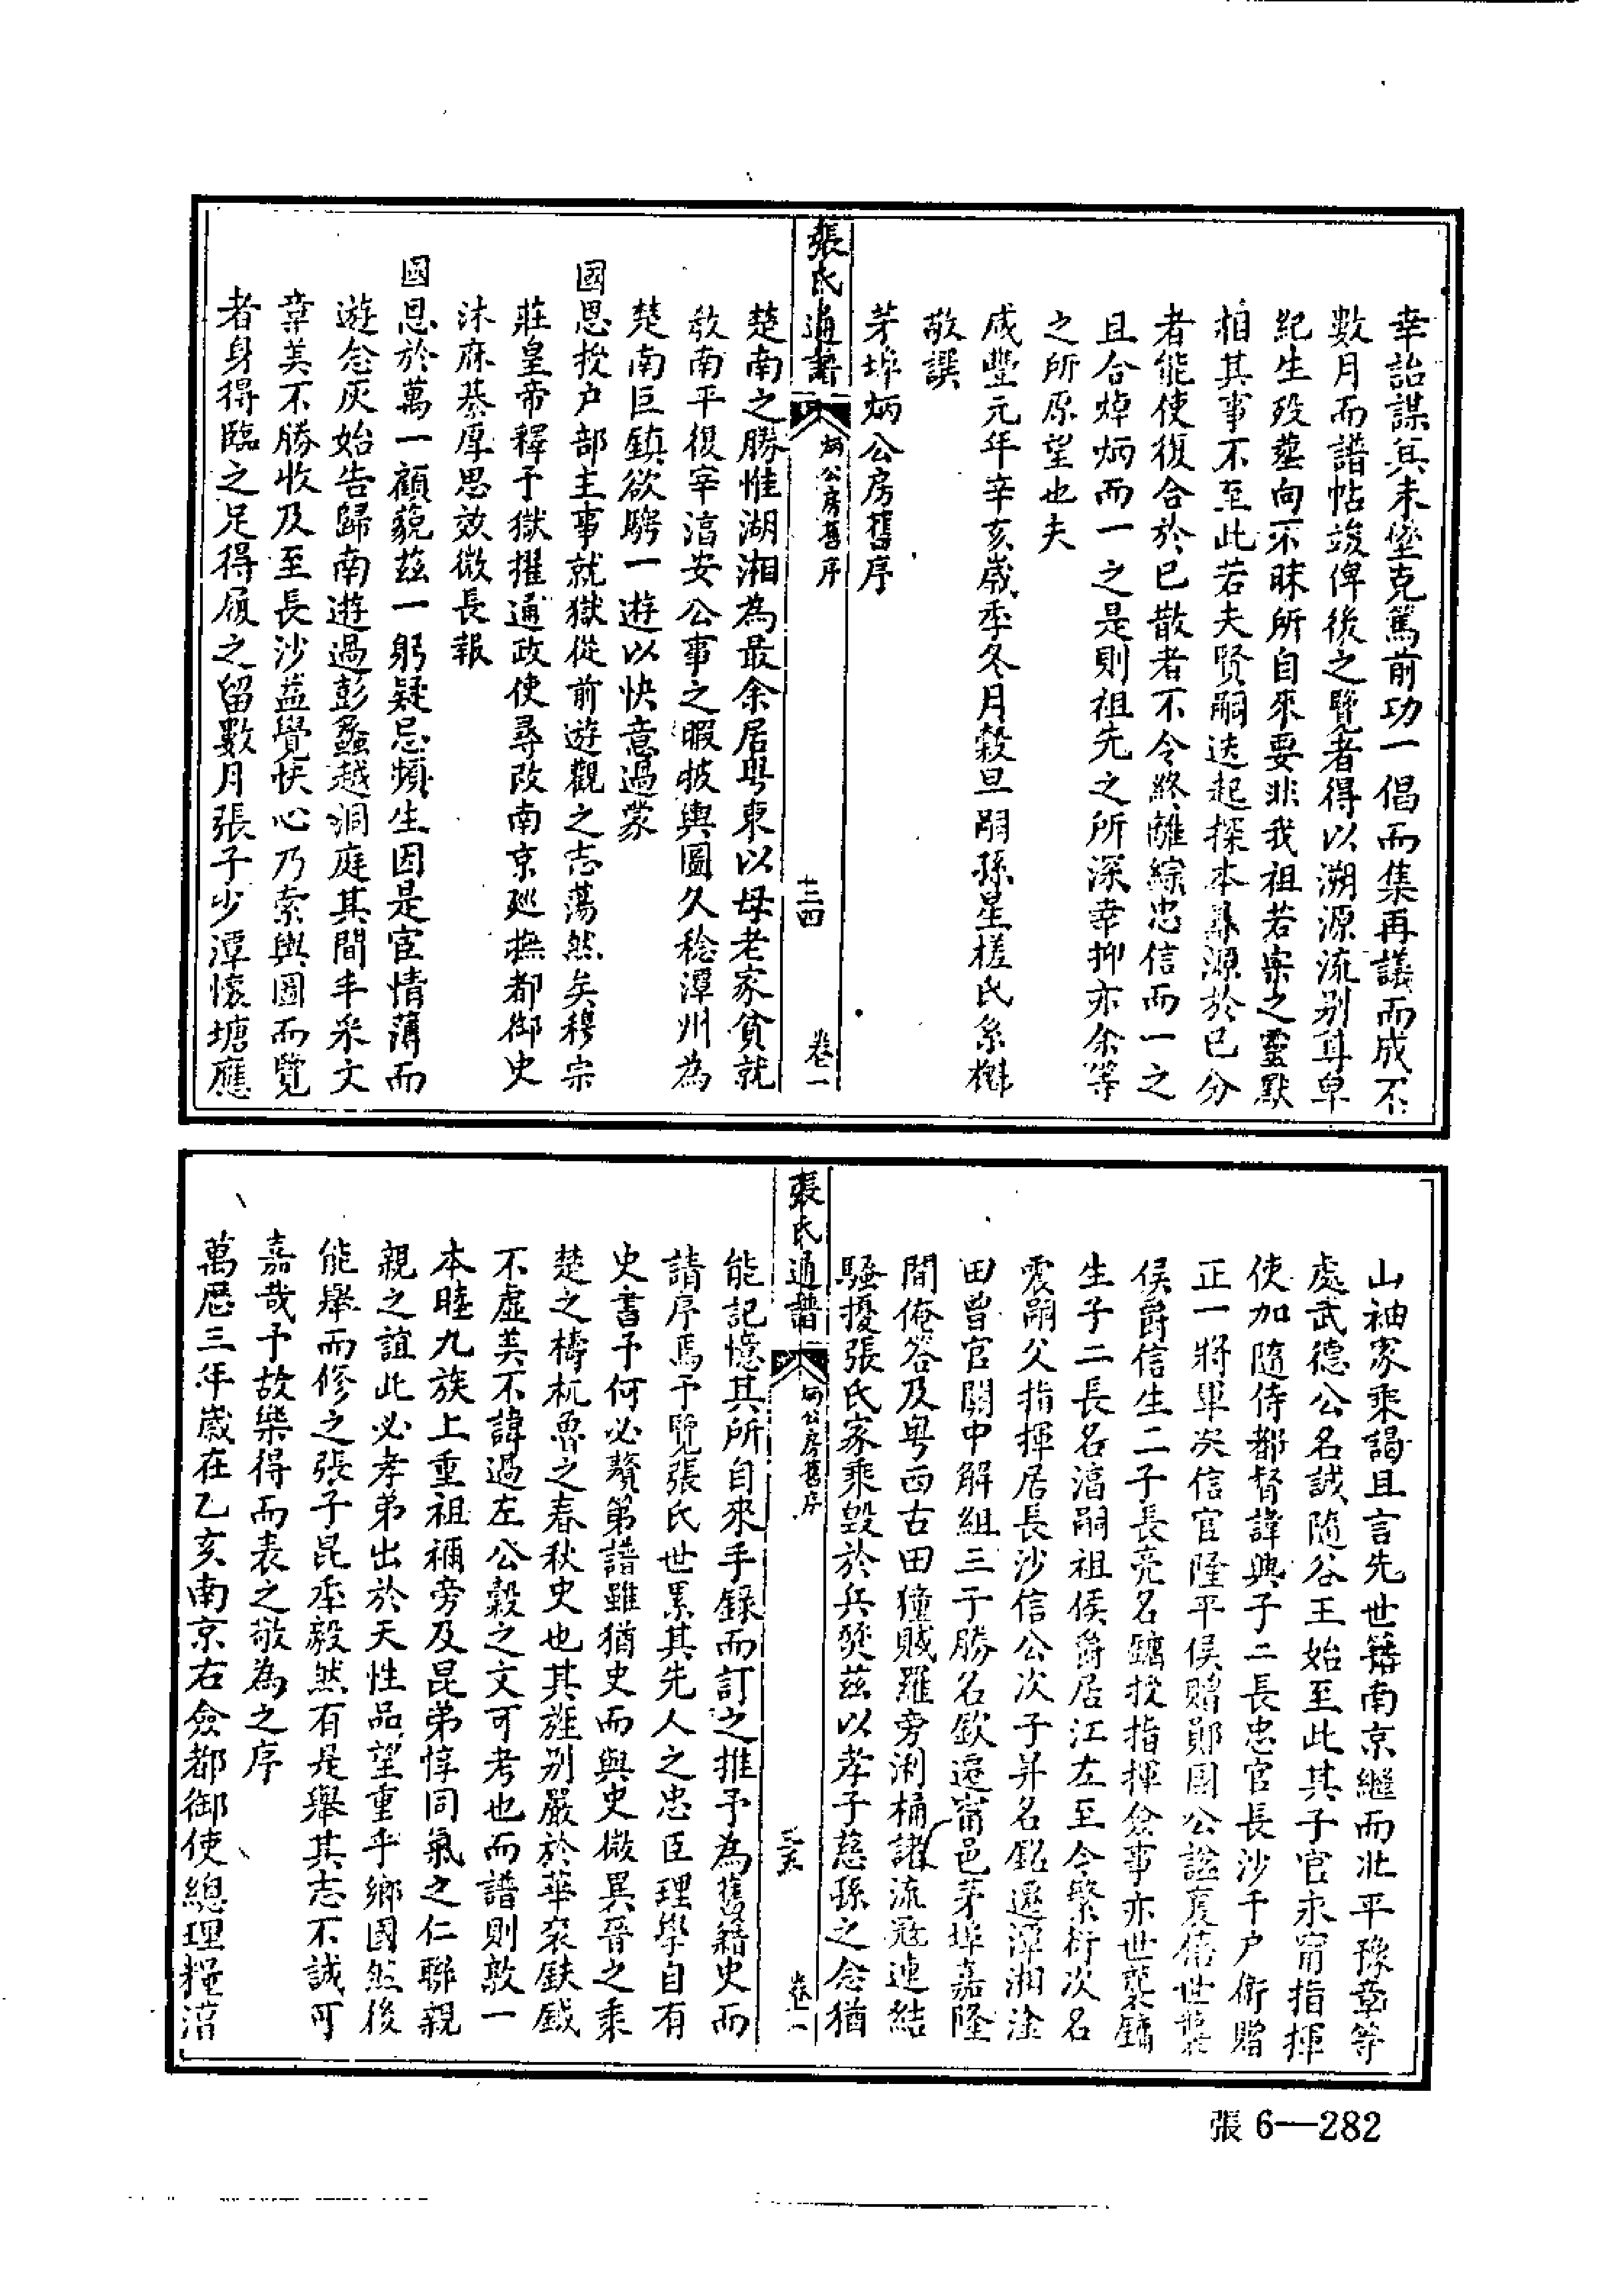 幸詒謀其未墜克篤前功一倡而集再議而成不
數月而譜帖竣俾後之覽者得以溯源流别尊卑
紀生歿塟向不昧所自來要非我祖若宗之靈默
相其事不至此若夫賢嗣迭起探本尋源於已分
者能使復合於已散者不令終離綜忠信而一之
且合焯炳而一之是則祖先之所深幸抑亦余等
之所原望也夫
咸豐元年辛亥嵗季冬月榖旦嗣孫星槎氏系
敬譔
茅埠炳公房舊序
張氏通譜
炳公房舊序
三四
卷一
楚南之勝惟湖湘為最余居粤東以母老家貧就
敎南平復宰滘安公事之暇披輿圖久稔潭州為
楚南巨鎮欲騁一遊以快意過蒙
國恩授户部主事就獄從前遊觀之志蕩然矣穆宗
莊皇帝釋予獄擢通政使尋改南京廵撫都御史
沐庥綦厚思效微長報
國恩於萬一顧藐兹一躬疑忌頻生因是宦情薄而
遊念灰始告歸南遊過彭蠡越洞庭其間丰采文
章美不勝收及至長沙益覺快心乃索輿圖而覽
者身得臨之足得履之留數月張子少潭懷塘應
山袖家乘謁且言先世籍南京繼而北平豫章等
處武德公名誠隨谷王始至此其子官永甯指揮
使加隨侍都督諱興子二長忠官長沙千户衛贈
正一將軍次信官隆平侯贈鄖國公諡襄僖世襲
侯爵信生二子長亮名鏞授指揮僉事亦世襲鏞
生子二長名滘嗣祖侯爵居江左至今繁衍次名
震嗣父指揮居長沙信公次子并名銘遷潭湘淦
田曾官關中解組三子勝名欽還甯邑茅埠嘉隆
間俺答及粤西古田獞賊羅旁浰桶諸流冦連結
騷擾張氏家乘毁於兵燹兹以孝子慈孫之念猶
張氏通譜
炳公房舊序
三五
卷一
能記憶其所自來手錄而訂之推予為舊籍史而
請序焉予覽張氏世系其先人之忠臣理學自有
史書予何必贅第譜雖猶史而與史微異晉之乘
楚之檮杌魯之春秋史也其旌别嚴於華衮鈇鉞
不虛美不諱過左公穀之文可考也而譜則敦一
本睦九族上重祖禰旁及昆弟惇同氣之仁聯親
親之誼此必孝弟出於天性品望重乎鄉國然後
能舉而修之張子昆季毅然有是舉其志不誠可
嘉哉予故樂得而表之敬為之序
萬厯三年嵗在乙亥南京右僉都御使總理糧滘
張6—282